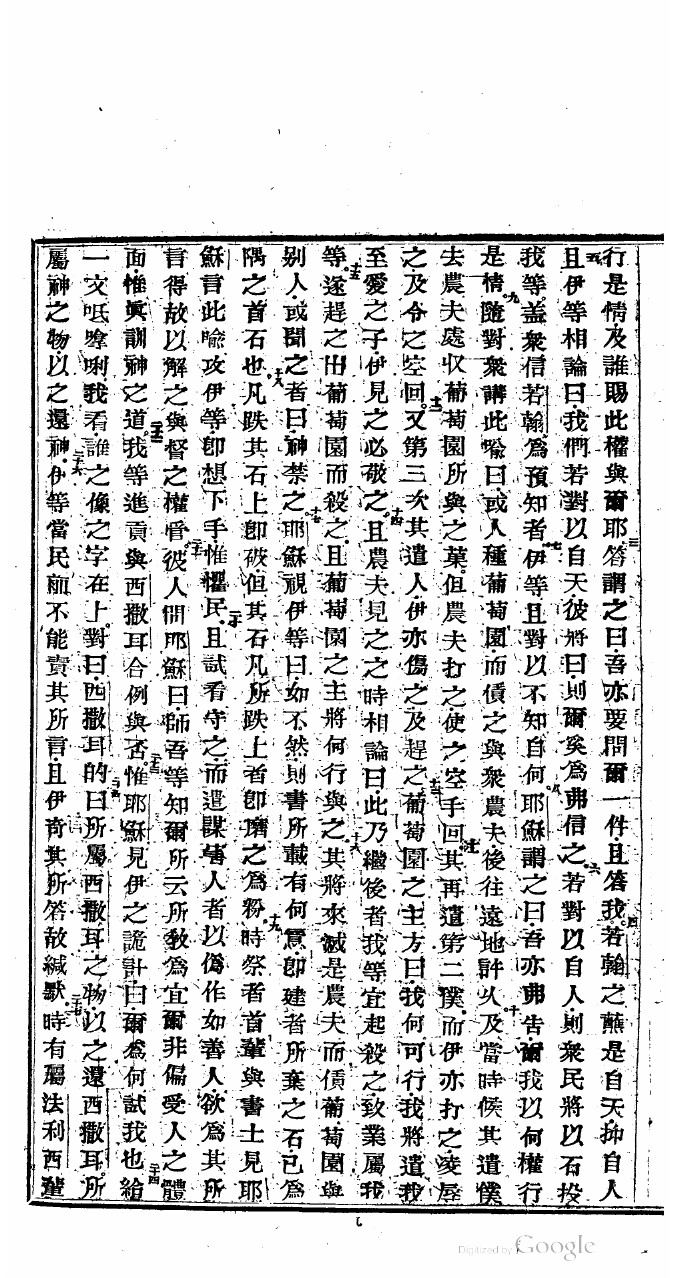 行是情及誰賜此權與爾耶三答謂之曰吾亦要問爾一件且答我四若翰之蘸是自天抑自人
五且伊等相論曰我們若對以自天彼將曰則爾奚爲弗信之六若對以自人則衆民將以石投
我等蓋衆信若翰爲預知者七伊等且對以不知自何八耶穌謂之曰吾亦弗告爾我以何權行
是情九隨對衆講此喻曰或人種葡萄園而債之與衆農夫後往遠地許久十及當時候其遣僕
去農夫處収葡萄園所與之菓但農夫打之使之空手回十一其再遣第二僕而伊亦打之凌辱
之及令之空回十二又第三次其遣人伊亦傷之及趕之十三葡萄園之主方曰我何可行我將遣我
至愛之子伊見之必敬之十四且農夫見之之時相論曰此乃繼後者我等宜起殺之致業屬我
等十五遂趕之出葡萄園而殺之且葡萄園之主將何行與之十六其將來滅是農夫而債葡萄園與
别人或聞之者曰神禁之十七耶穌視伊等曰如不然則書所載有何意即建者所棄之石已爲
隅之首石也十八凡跌其石上即破但其石凡所跌上者即磨之爲粉十九時祭者首輩與書士見耶
穌言此喻攻伊等即想下手惟懼民二十且試看守之而遣謀害人者以僞作如善人欲爲其所
言得故以解之與督之權惛二十一彼人問耶穌曰師吾等知爾所云所敎爲宜爾非偏受人之體
面惟眞訓神之道二十二我等進貢與西撒耳合例與否二十三惟耶穌見伊之詭計曰爾爲何試我也二十四給
一文呧嚟唎我看誰之像之字在上對曰西撒耳的二十五曰所屬西撒耳之物以之還西撒耳所
屬神之物以之還神二十六伊等當民面不能責其所言且伊奇其所答故緘默二十七時有屬法利西輩
Digitized by Google